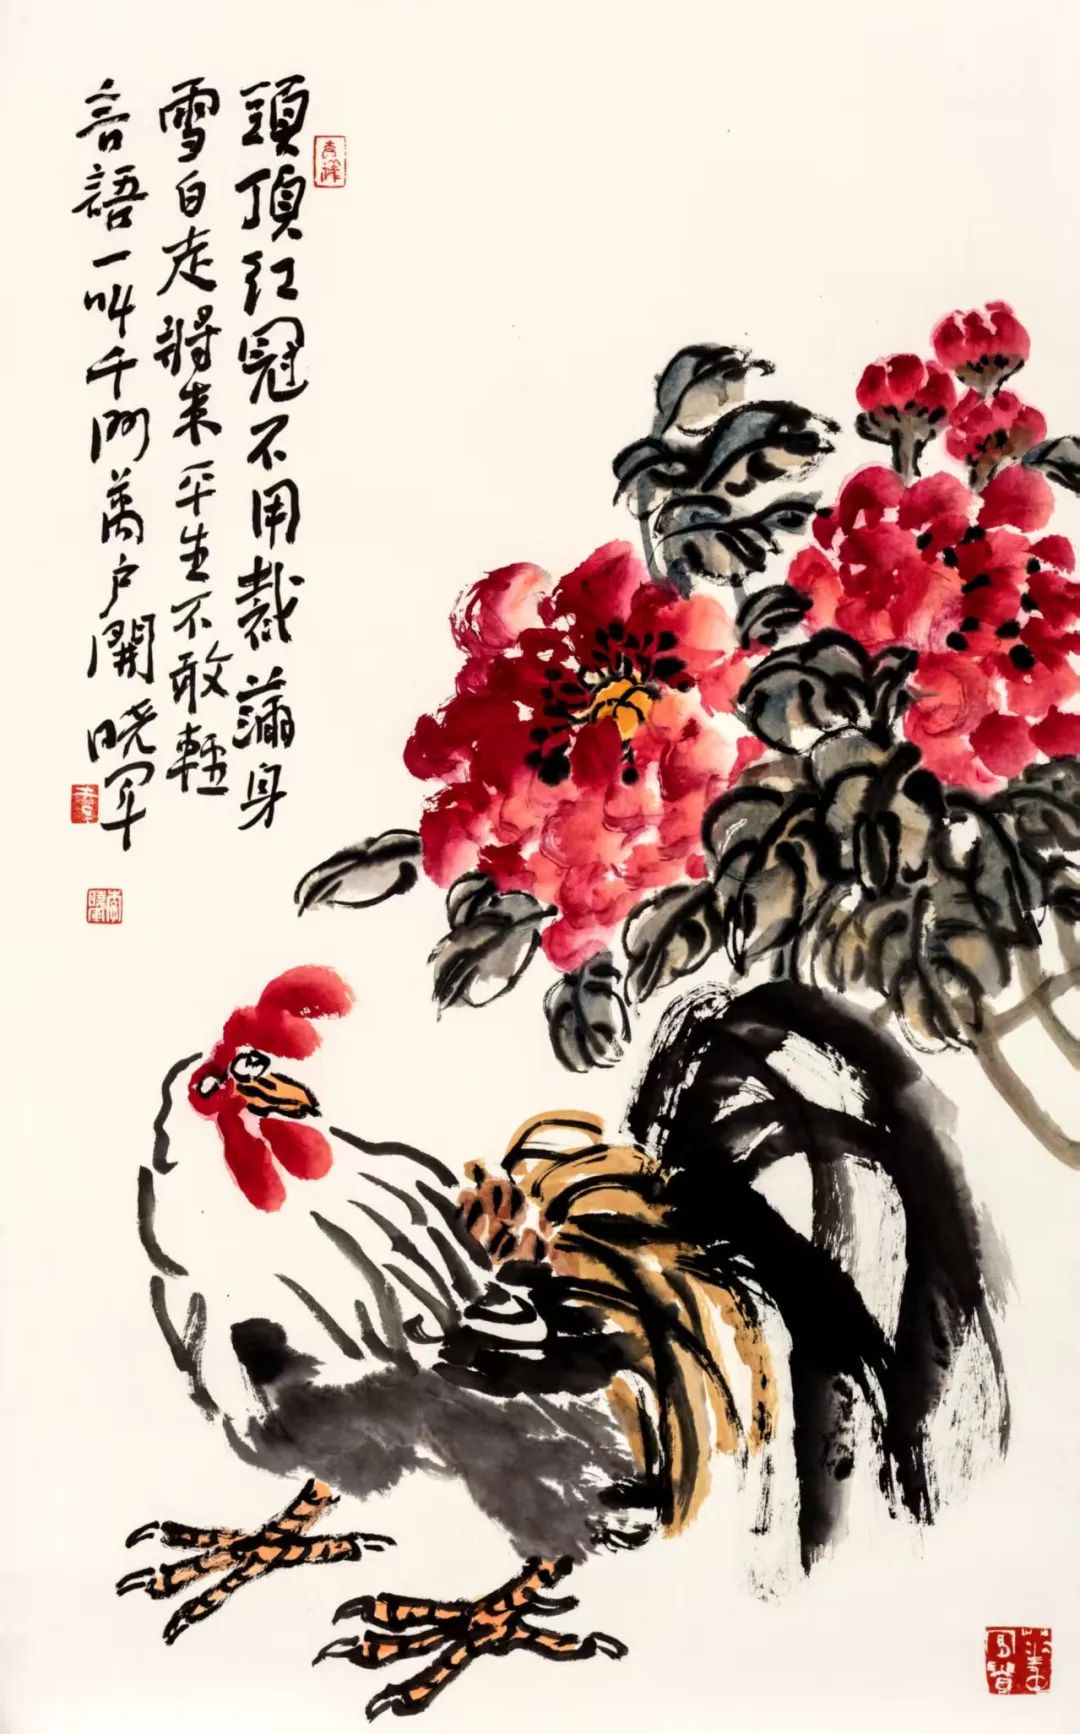 頭頂紅冠不用裁滿身
雪白走將來平生不敢輕
言語一叫千門萬户開 晓军